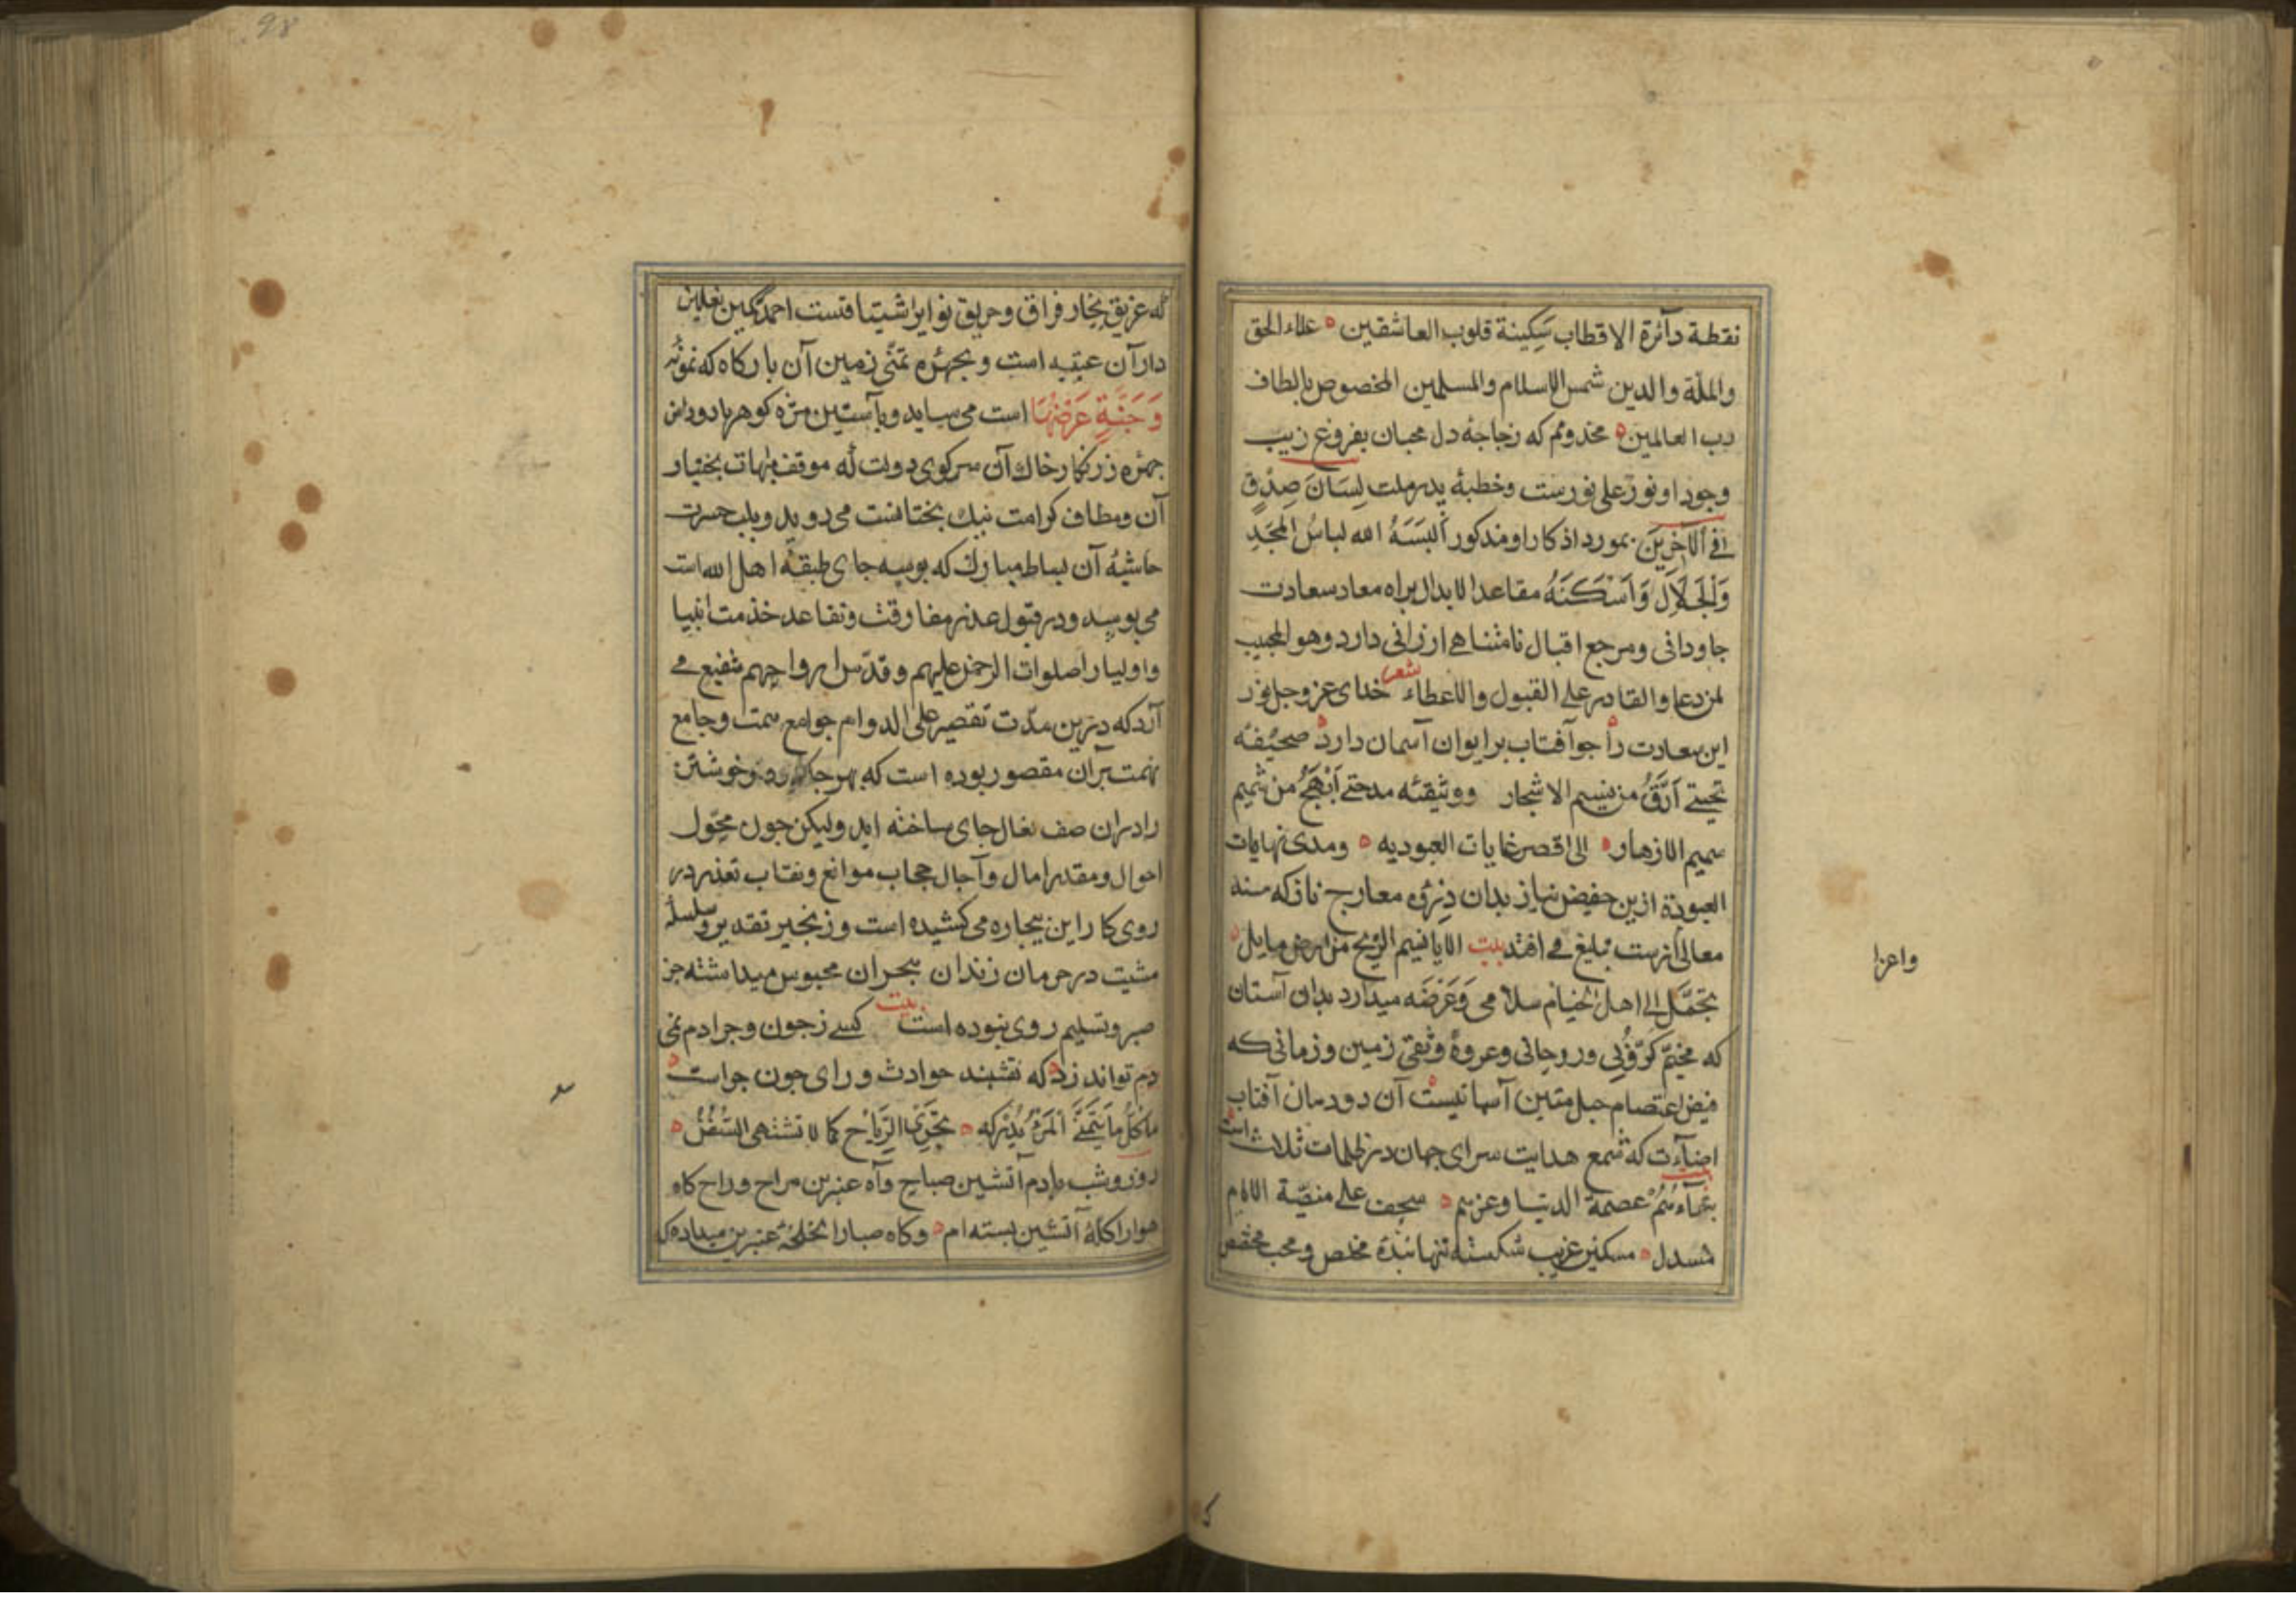 نقطة دآئرة الاقطاب سَكِينة قلوب العاشقين علاء الحق
والملّة والدين شمس الاسلام والمسلمين المخصوص بالطاف
رب العالمين مخدومم که زجاجهٔ دل محبان بفروغ زیب
وجود او نورٌ علی نورست وخطبهٔ لِسَانَ صِدْقٍ
فی ٱلآخِرِینَ بمورد اذکار او مذکور أَلبَسَهُ الله لباسُ المَجَدِ
وَالْجَلَالِ وَاَسْكَنَهُ مقاعد الابدال براه معاد سعادت
جاودانی ومرجع اقبال نامتناهی ارزانی دارد وهو المجیب
لمن دعا والقادر علی القبول والاعطاء شعر خدای عز وجل نور
این سعادت را جو آفتاب بر ایوان آسمان دارد صحیفهٔ
تحیتی اَرَقُّ من نسیم الاشجار ووثیقهٔ مدحتی اَبْهَجُ من شمیم
الازهار الی اقصر غایات العبودیه ومدی نهایات
العبودة ازین حضیض نیاز بدان ذِرْوهٔ معارج ناز که سنه
معالی تبلیغ می افتد بیت الایا نسیم الریح من ارض بابل
تحمَّل الی اهل الخیام سلامی وَعَرْضَه میدارد بدان آستان
که مخیّم کرّوبی وروحانی وعروهٔ وثقی زمین وزمانی که
فیض اعتصام حبل متین آسمانیست آن دودمان آفتاب
اضآءت که شمع هدایت سرای جهان در ظلمات ثلاث است
عصمة الدنیا وعزهم سجف علی منصّة الایام
منسدل مسکین غریب شکسته تنها بندهٔ مخلص ومحب
واعزا
98
که غریق بحار فراق وحریق نوایر اشتیاقست احمد
دار آن عتبه است وبچهرهٔ تمنّی زمین آن بارکاه که نمونهٔ
وَجَنَّةٍ عَرْضُهَا است می ساید وبآستین مژه کوهربار دوراز
چهره زرنکار خاك آن سرکوی دولت که موقف بختیار
آن ومطاف کرامت نیك بختانست می روبد وبلب حسرت
حاشیهٔ آن بساط مبارك که بوسه جای طبقهٔ اهل الله است
می بوسد ودر قبول عذر مفارقت وتقاعد خدمت انبیا
واولیا را صلوات الرحمن علیهم وقدّس ارواحهم شفیع می
آرد که درین مدّت تقصیر علی الدوام جوامع همت وجامع
نهمت بر آن مقصور بوده است که خویشتن
را در ان صف نعال جای ساخته اید ولیکن جون محوّل
احوال ومقدر امال وآجال حجاب موانع ونقاب تعذر در
روی کار این بیجاره می کشیده است وزنجیر تقدیر وسلسله
مشیت در حرمان زندان هجران محبوس میداشته جز
صبر وتسلیم روی نبوده است بیت کسی زجون وجرا دم نمی
دم تواند زد که نقشبند حوادث ورای جون جراست
ما کُلُّ مَا یَتَمَنَّی اَلمَرْءُ یُدْرِکه تَجْرِی الرِّیَاحُ کما لا تشتهی السُّفُنُ
روز وشب بادم آتشین صباح وآه عنبرین مراح وراح کاه
هوارا کلهٔ آتشین بسته ام وکاه صبارا لخلخهٔ عنبرین میداده